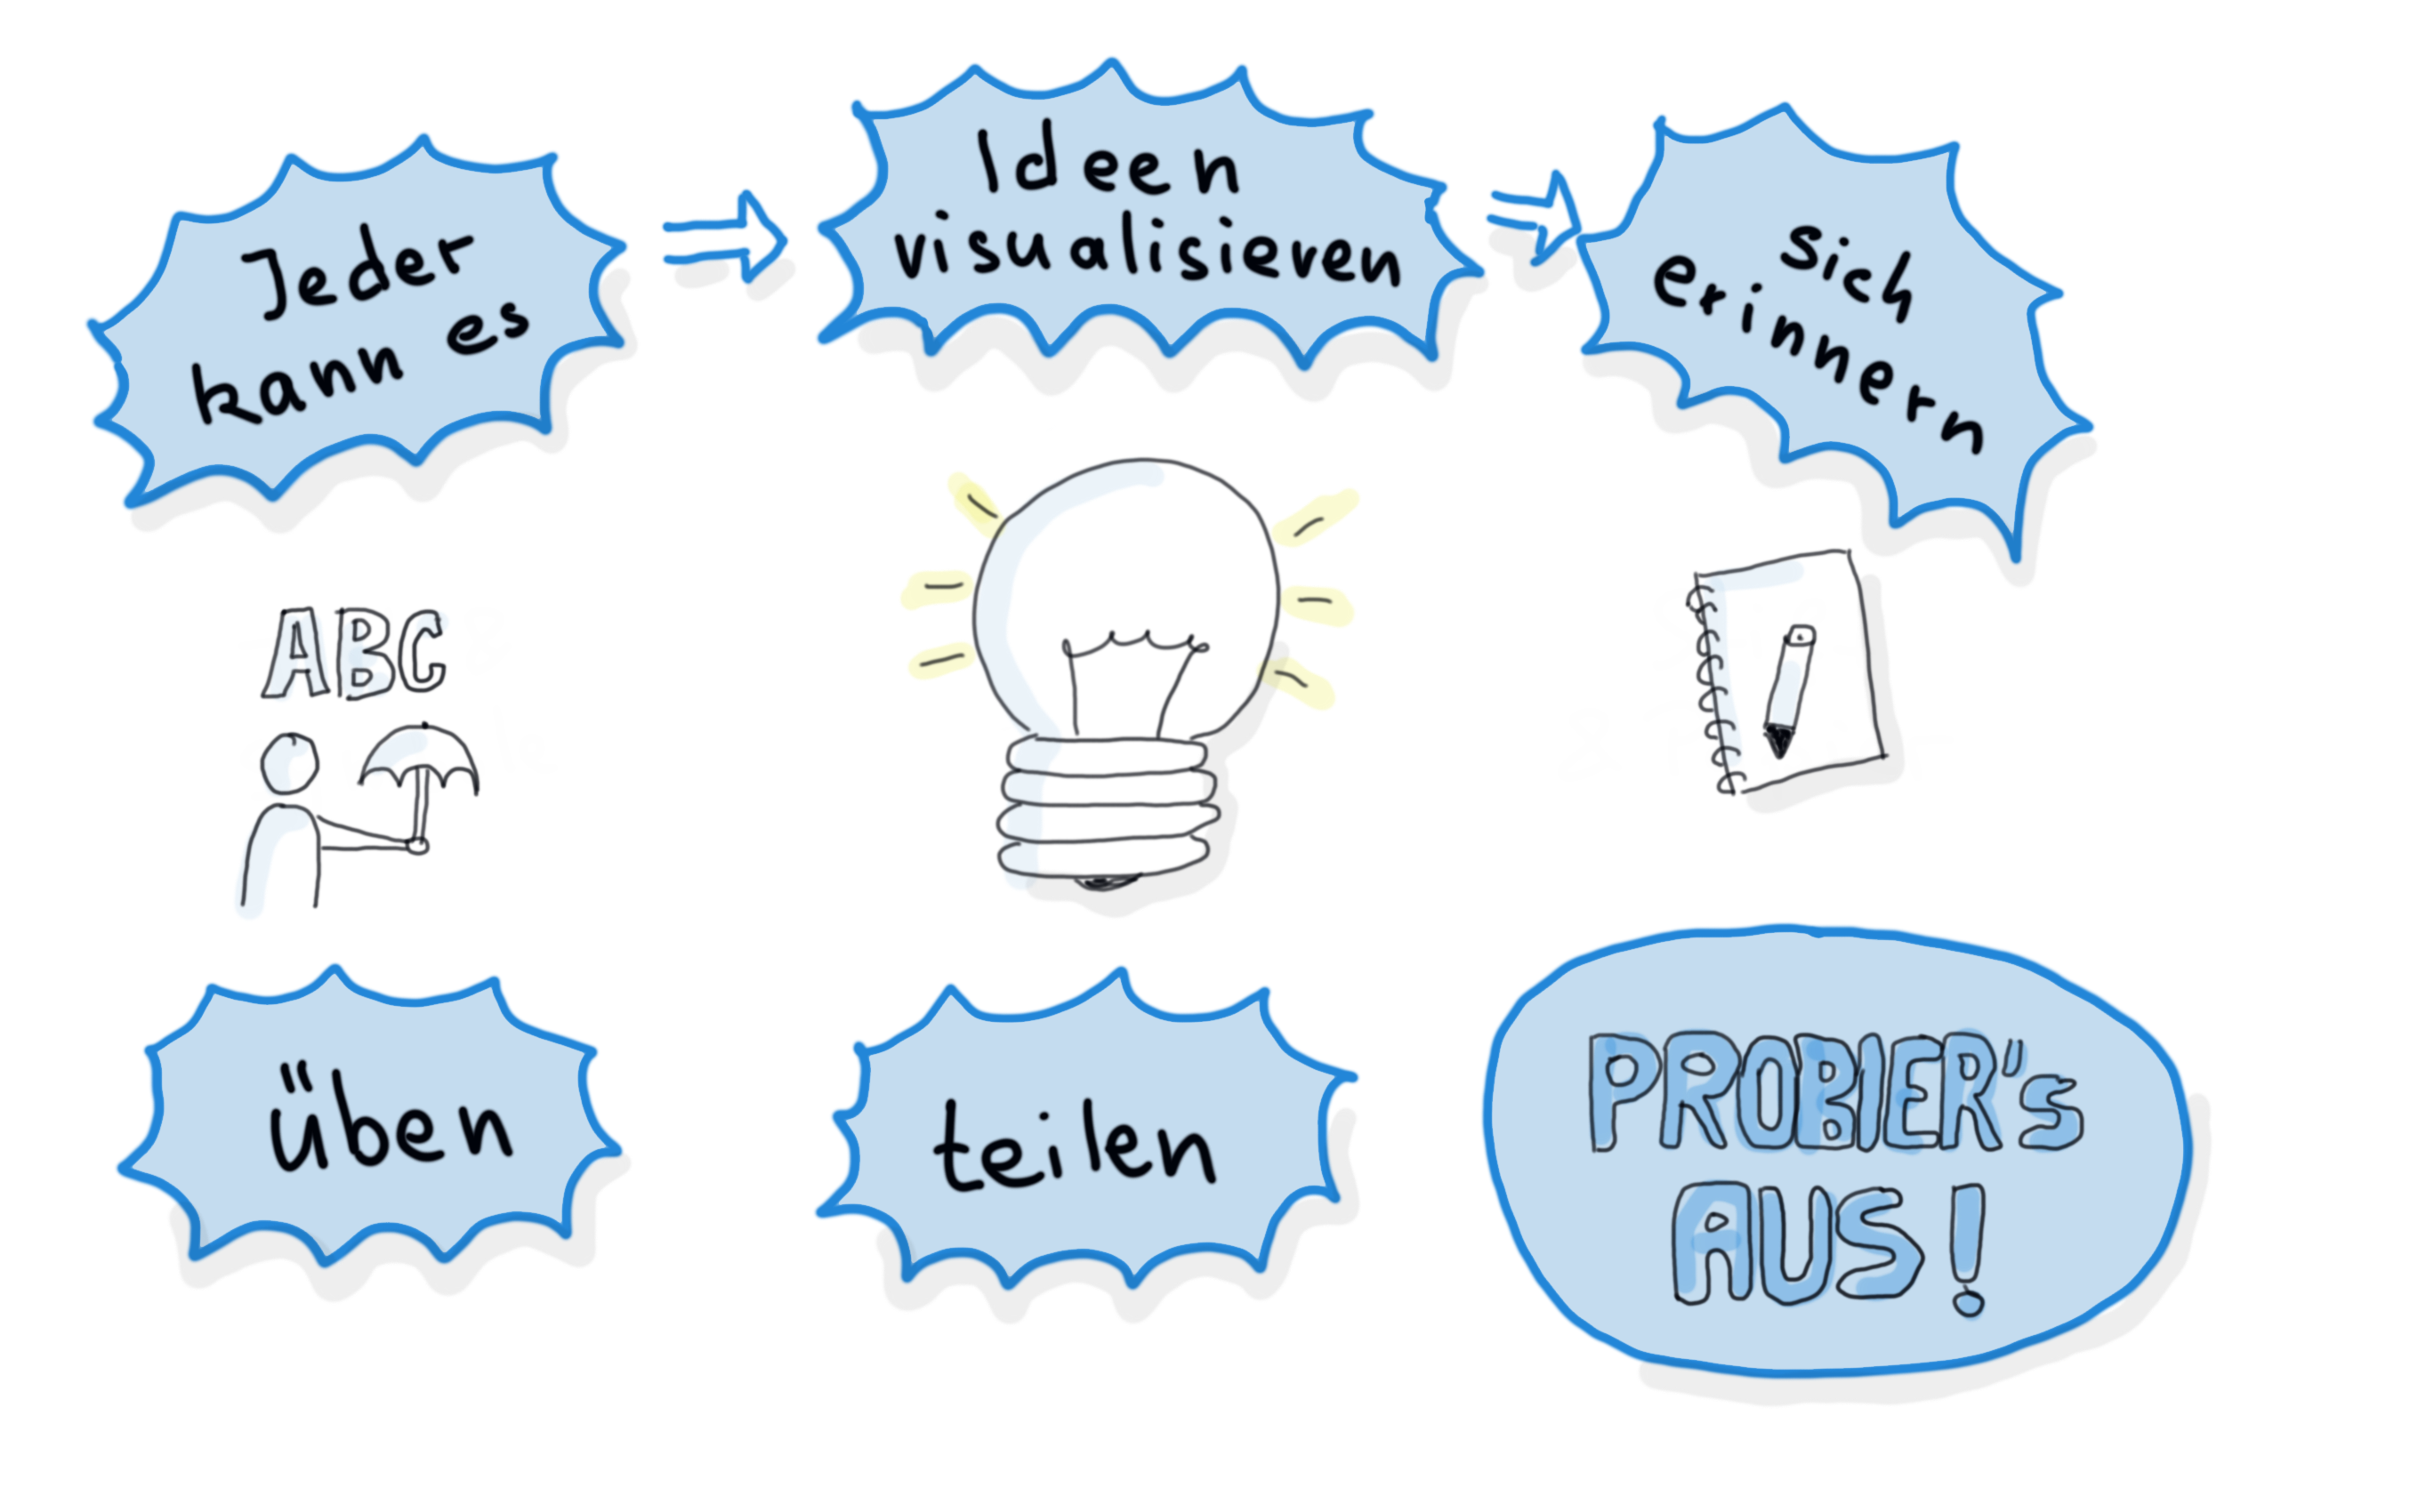 Jeder
kann es
Ideen
visualisieren
sich
erinnern
ABC
üben
teilen
PROBIER's
AUS!